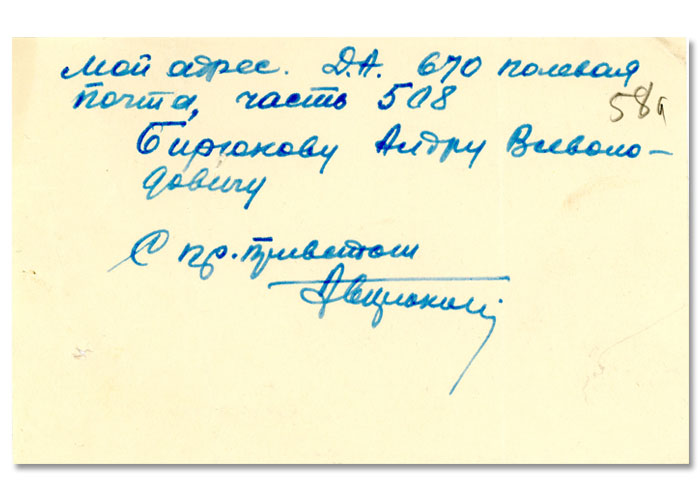 мой адрес. Д.А. 670 полевая
почта, часть 508
58а
Бирюкову Алдру Всеволо-
довичу
С пр. приветом